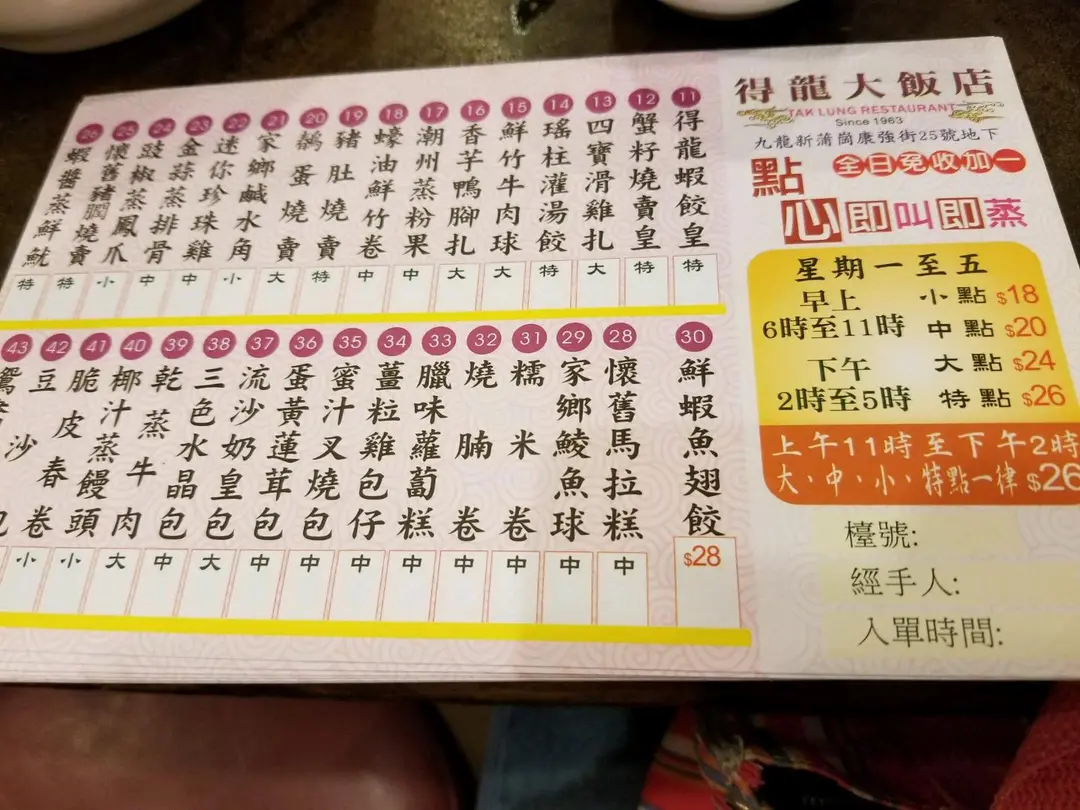 得龍大飯店
TAK LUNG RESTAURANT
Since 1963
九龍新蒲崗康強街25號地下
全日免收加一
點心即叫即蒸
星期一至五
早上
6時至11時
下午
2時至5時
小點 $18
中點 $20
大點 $24
特點 $26
上午11時至下午2時
大、中、小、特點一律 $26
檯號:
經手人:
入單時間:
11 得龍蝦餃皇 特
12 蟹籽燒賣皇 特
13 四寶滑雞扎 大
14 瑤柱灌湯餃 特
15 鮮竹牛肉球 大
16 香芋鴨腳扎 大
17 潮州蒸粉果 中
18 蠔油鮮竹卷 中
19 豬肚燒賣 特
20 鵪蛋燒賣 大
21 家鄉鹹水角 小
22 迷你珍珠雞 中
23 金蒜蒸排骨 中
24 豉椒蒸鳳爪 小
25 懷舊豬膶燒賣 特
26 蝦醬蒸鮮魷 特
30 鮮蝦魚翅餃 $28
28 懷舊馬拉糕 中
29 家鄉鯪魚球 中
31 糯米卷 中
32 燒腩卷 中
33 臘味蘿蔔糕 中
34 薑粒雞包仔 中
35 蜜汁叉燒包 中
36 蛋黃蓮茸包 中
37 流沙奶皇包 中
38 三色水晶包 大
39 乾蒸牛肉 中
40 椰汁蒸饅頭 大
41 脆皮春卷 小
42 豆沙包 小
43